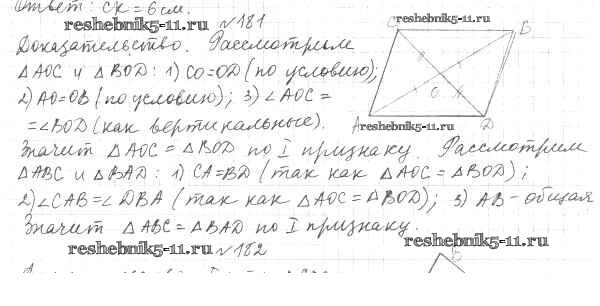 Ответ: CK = 6 см.
reshebnik5-11.ru №181
Доказательство. Рассмотрим
△AOC и △BOD: 1) CO=OD (по условию);
2) AO=OB (по условию); 3) ∠AOC =
=∠BOD (как вертикальные).
C
B
O
A
D
reshebnik5-11.ru
reshebnik5-11.ru
Значит △AOC = △BOD по I признаку. Рассмотрим
△ABC и △BAD: 1) CA=BD (так как △AOC = △BOD);
2) ∠CAB=∠DBA (так как △AOC = △BOD); 3) AB – общая
Значит △ABC = △BAD по I признаку.
reshebnik5-11.ru №182
reshebnik5-11.ru
B